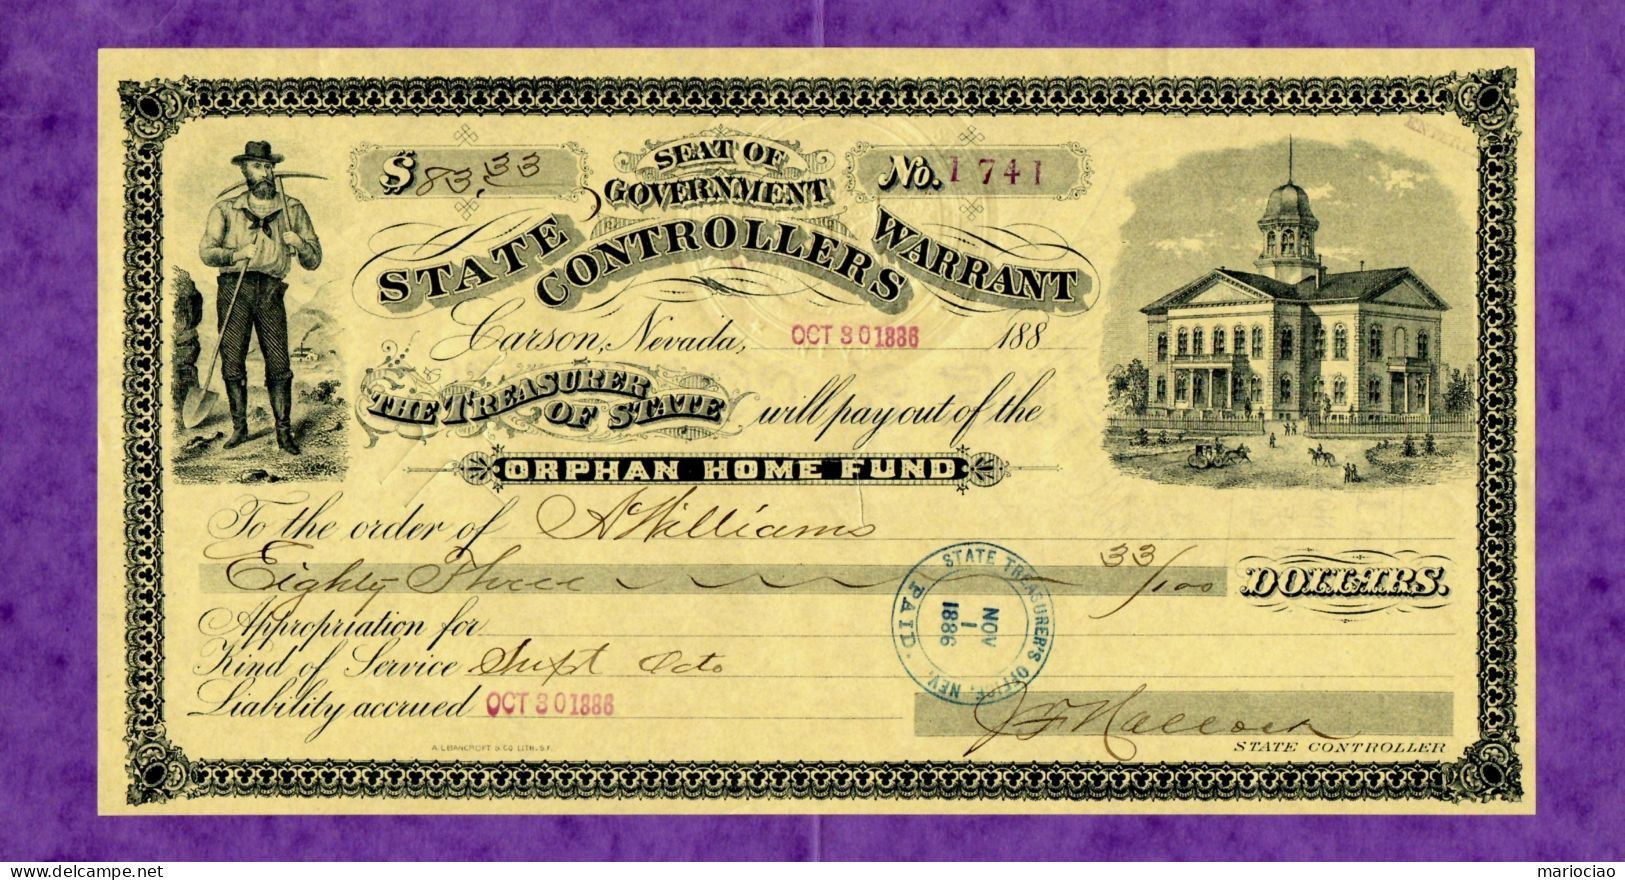 SEAT OF
GOVERNMENT
$ 83.33
No. 1741
STATE CONTROLLERS WARRANT
Carson, Nevada, OCT 30 1886 188
THE TREASURER OF STATE will pay out of the
ORPHAN HOME FUND
To the order of A Williams
Eighty Three 33/100 DOLLARS.
Appropriation for
Kind of Service Supt Octo
Liability accrued OCT 30 1886
STATE TREASURER'S OFFICE, NEV.
PAID.
NOV
1
1886
J F Hallock
STATE CONTROLLER
A.L. BANCROFT & CO LITH. S.F.
delcampe.net
mariociao